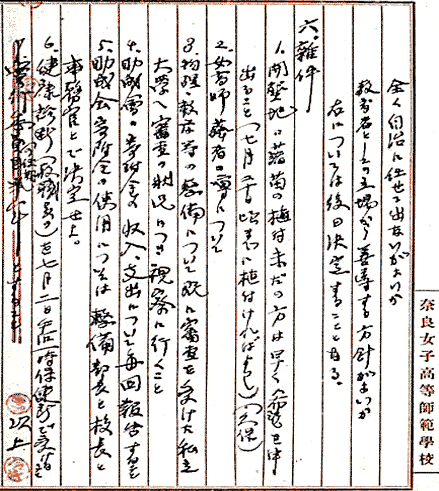 全く自治に任せて出ないがよいか
教育者としての立場から善導する方針がよいか
右については後日決定することゝする。
六、雑件
1. 開墾地に藷苗の植付未だの方は早く希望を申
出ること(七月二十日頃までに植付ければよし)(久保)
2. 女高師 者の について
3. 物理・教室等の整備について既に審査を受けた私立
大学へ審査の状況につき視察に行くこと
4. 助成會の寄附金の收入、支出について毎回報告すること
5. 助成会寄附金の使用については整備部長と校長と
事務官とで決定せよ。
6. 健康診断(教職員の)を七月二日 時保健所で受ける
以上
奈良女子高等師範學校